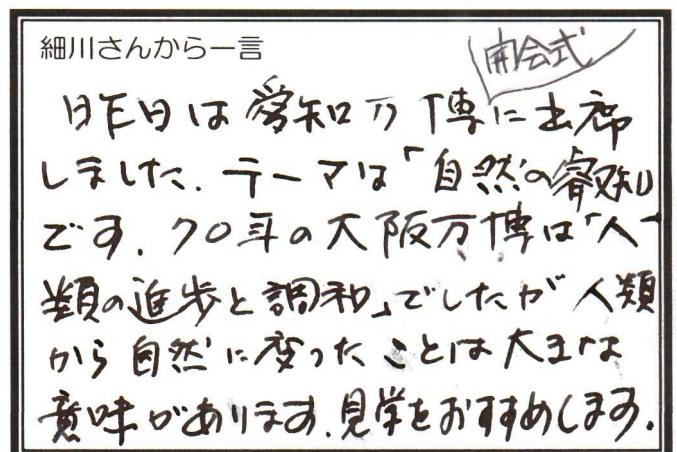 細川さんから一言
開会式
昨日は愛知万博に出席
しました。テーマは「自然の叡知」
です。70年の大阪万博は「人
類の進歩と調和」でしたが人類
から自然に変ったことは大きな
意味があります。見学をおすすめします。